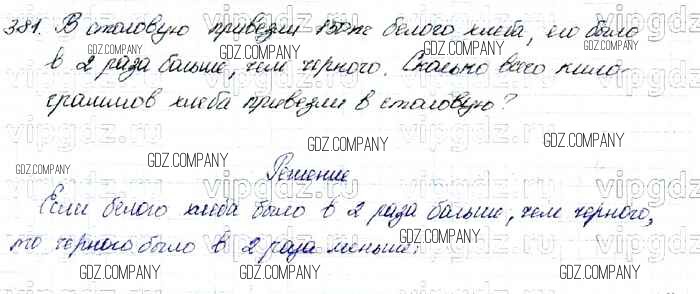 381. В столовую привезли 150кг белого хлеба, его было
в 2 раза больше, чем черного. Сколько всего кило-
граммов хлеба привезли в столовую?
Решение
Если белого хлеба было в 2 раза больше, чем черного,
то черного было в 2 раза меньше:
GDZ.COMPANY
vipgdz.ru